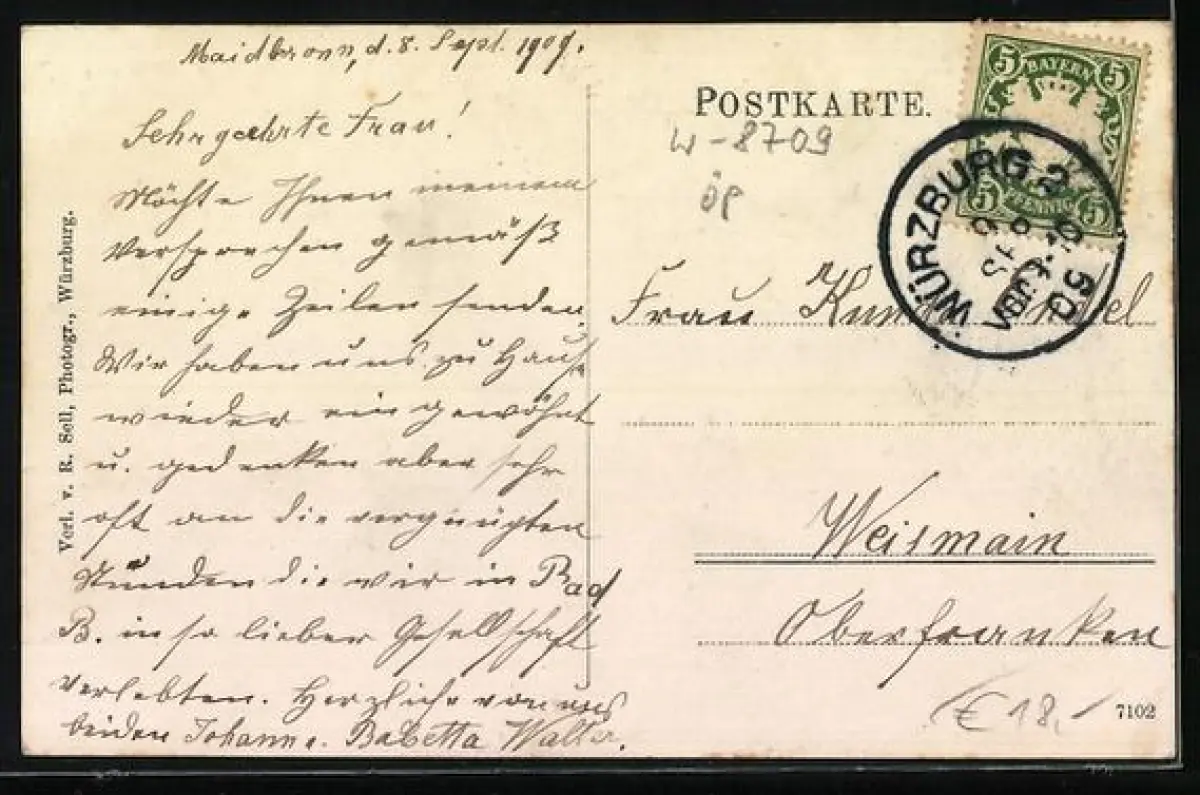 Maidbronn, d. 8. Sept. 1909.
Sehrgeehrte Frau!
Möchte Ihnen meinem
Versprechen gemäß
einige Zeilen senden.
Wir haben uns zu Hause
wieder ein gewöhnt
u. gedenken aber sehr
oft an die vergnügten
Stunden die wir in Bad
B. in so lieber Gesellschaft
verlebten. Herzliche von uns
beiden Johann u. Babetta Walter.
Verl. v. R. Sell, Photogr., Würzburg.
POSTKARTE.
W-8709
öp
5 BAYERN 5
5 PFENNIG 5
WÜRZBURG 2
9 SEP
VORM
Frau
Weismain
Oberfranken
€ 18,-
7102